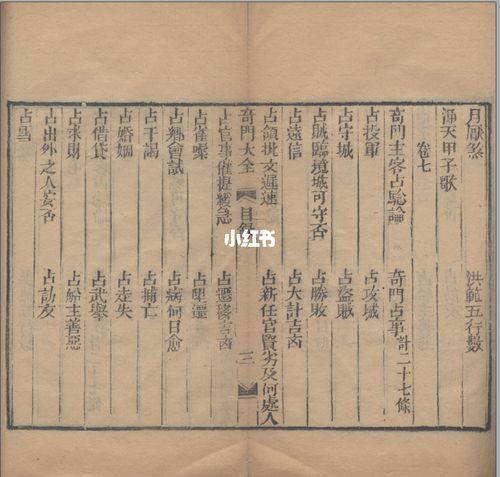 月厭煞　洪範五行數
渾天甲子歌
卷七
奇門主客占驗論　奇門占事計二十七條
占投軍　占攻城
占守城　占盜賊
占賊臨境城可守否　占勝敗
占遠信　占大計吉凶
占領批文遲速　占新任官賢劣及何處人
奇門大全　目錄　三
占官事催提緩急　占遷移吉凶
占雀噪　占陞遷
占鄉會試　占病何日愈
占干謁　占捕亡
占婚姻　占走失
占借貸　占武舉
占求財　占船主善惡
占出外之人安否　占訪友
占雪
小红书